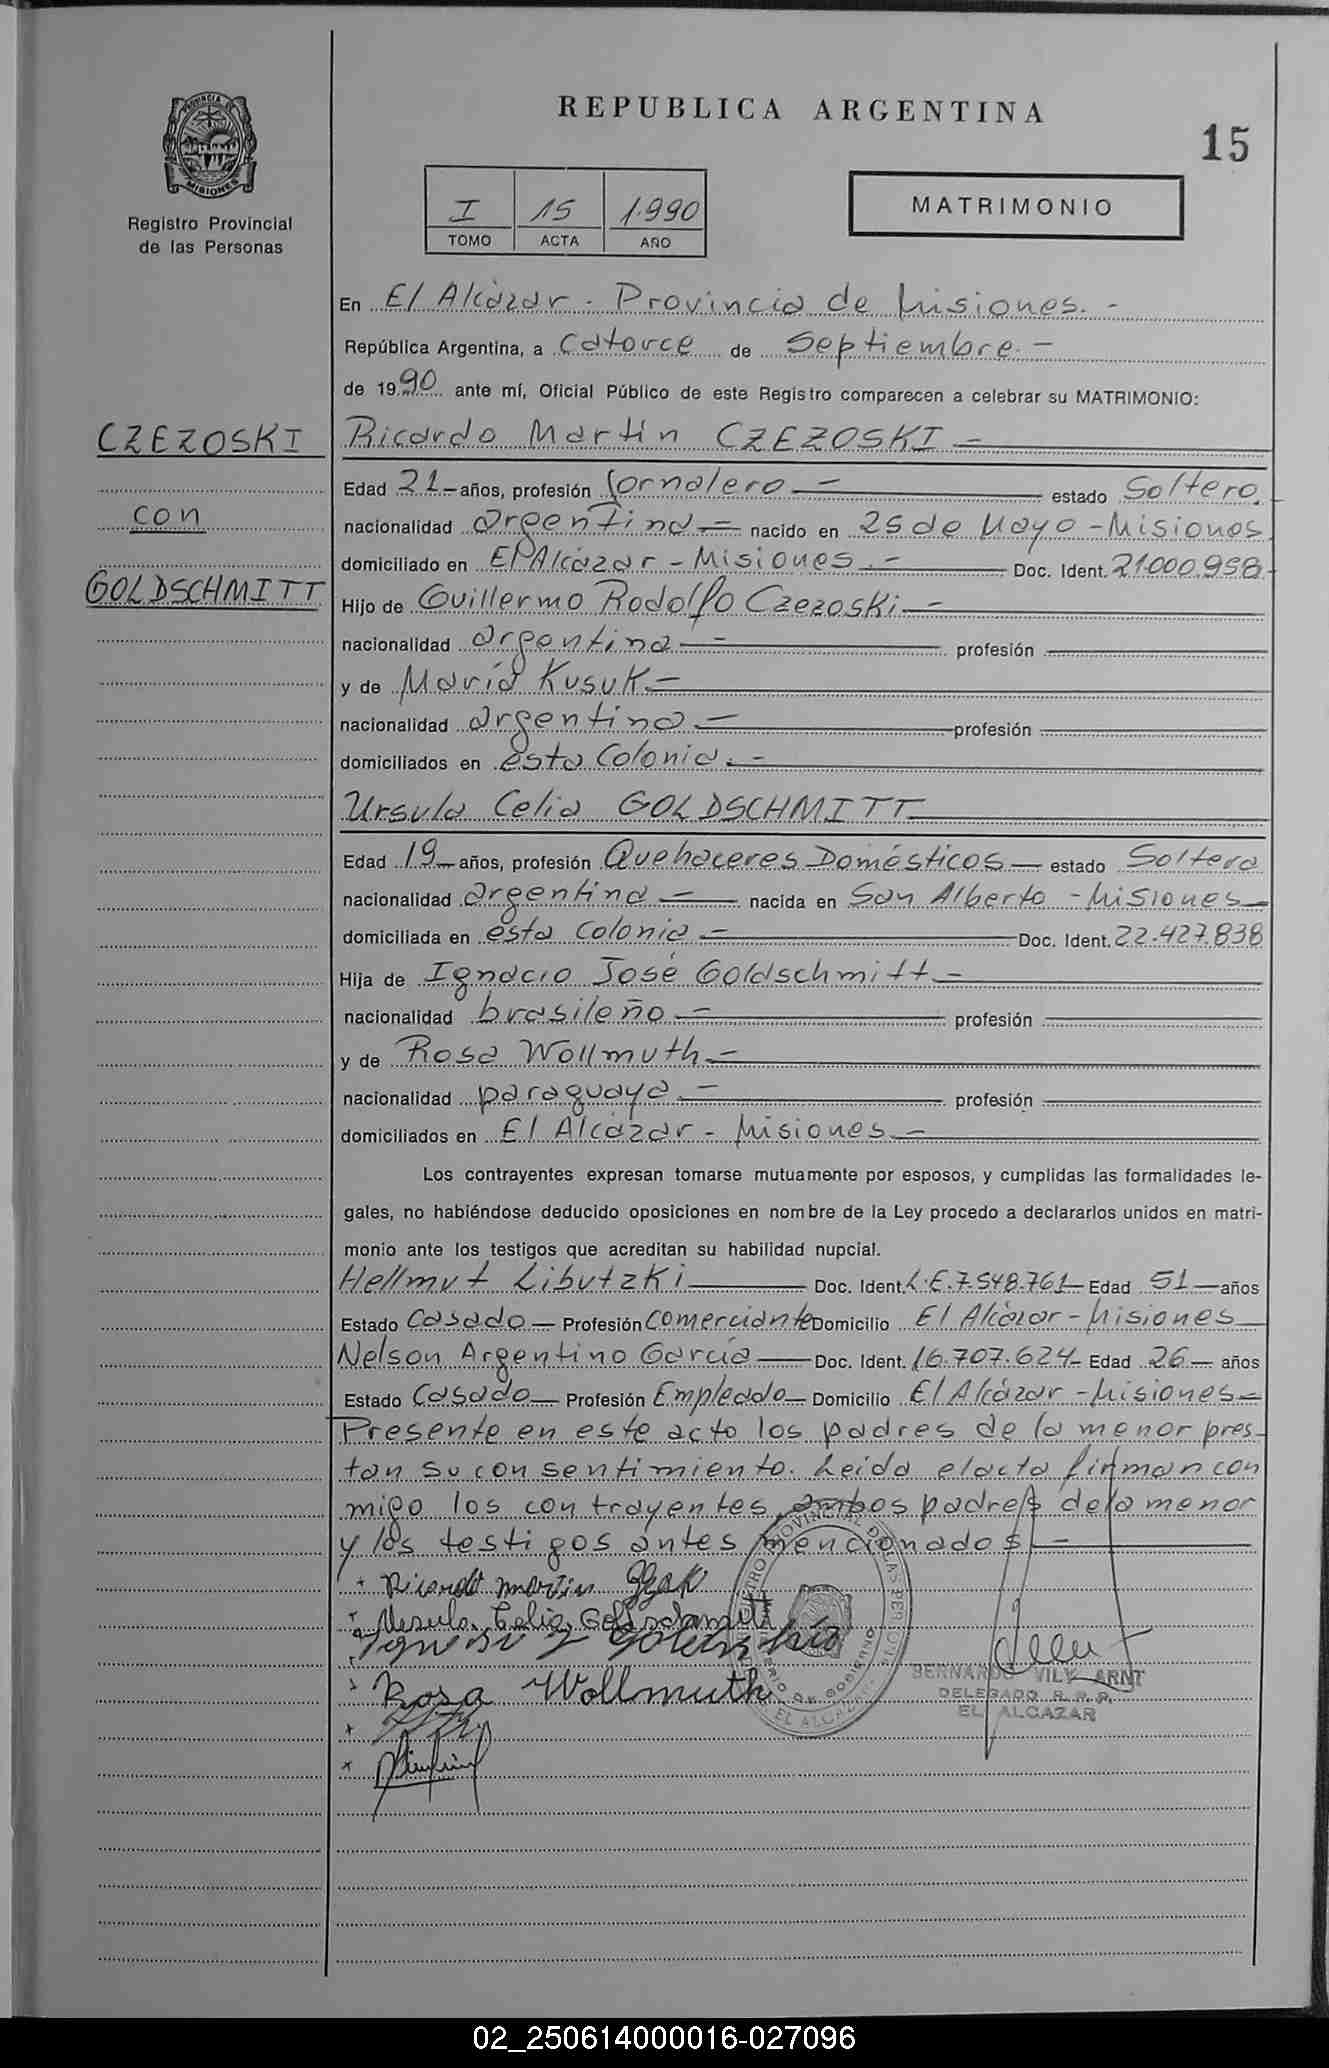 PROVINCIA DE
MISIONES
Registro Provincial
de las Personas
REPUBLICA ARGENTINA
15
I 15 1.990
TOMO ACTA AÑO
MATRIMONIO
En El Alcázar - Provincia de Misiones. -
República Argentina, a catorce de Septiembre. -
de 1990 ante mí, Oficial Público de este Registro comparecen a celebrar su MATRIMONIO:
CZEZOSKI
con
GOLDSCHMITT
Ricardo Martín CZEZOSKI -
Edad 21 - años, profesión Jornalero - estado Soltero.
nacionalidad argentina - nacido en 25 de Mayo - Misiones
domiciliado en El Alcázar - Misiones. - Doc. Ident. 21.000.958 -
Hijo de Guillermo Rodolfo Czezoski -
nacionalidad argentina - profesión
y de María Kusuk. -
nacionalidad argentina. - profesión
domiciliados en esta Colonia. -
Ursula Celia GOLDSCHMITT
Edad 19 - años, profesión Quehaceres Domésticos - estado Soltera
nacionalidad argentina - nacida en San Alberto - Misiones -
domiciliada en esta Colonia - Doc. Ident. 22.427.838
Hija de Ignacio José Goldschmitt -
nacionalidad brasileño - profesión
y de Rosa Wollmuth -
nacionalidad paraguaya - profesión
domiciliados en El Alcázar - Misiones -
Los contrayentes expresan tomarse mutuamente por esposos, y cumplidas las formalidades le-
gales, no habiéndose deducido oposiciones en nombre de la Ley procedo a declararlos unidos en matri-
monio ante los testigos que acreditan su habilidad nupcial.
Hellmut Libutzki - Doc. Ident. L.E. 7.548.761 - Edad 51 - años
Estado Casado - Profesión Comerciante Domicilio El Alcázar - Misiones -
Nelson Argentino García - Doc. Ident. 16.707.624 - Edad 26 - años
Estado Casado - Profesión Empleado - Domicilio El Alcázar - Misiones -
Presente en este acto los padres de la menor pres-
tan su consentimiento. Leida el acta firman con
migo los contrayentes, ambos padres de la menor
y los testigos antes mencionados -
Ricardo Martin
Ursula Celia Goldschmitt
Rosa Wollmuth
REGISTRO PROVINCIAL DE LAS PERSONAS
MINISTERIO DE GOBIERNO
EL ALCAZAR
BERNARDO VILY ARNT
DELEGADO R. P. P.
EL ALCAZAR
02_250614000016-027096